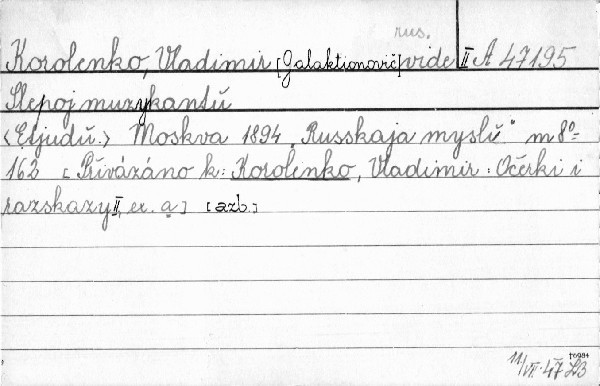 rus.
Korolenko, Vladimir [Galaktionovič] vide II A 47195
Slepoj muzykantŭ
<Etjudŭ.> Moskva 1894 „Russkaja myslĭ" m 8°
162 [Přivázáno k: Korolenko, Vladimir: Očerki i
razskazy II, ex. a] [azb.]
11/VI-47